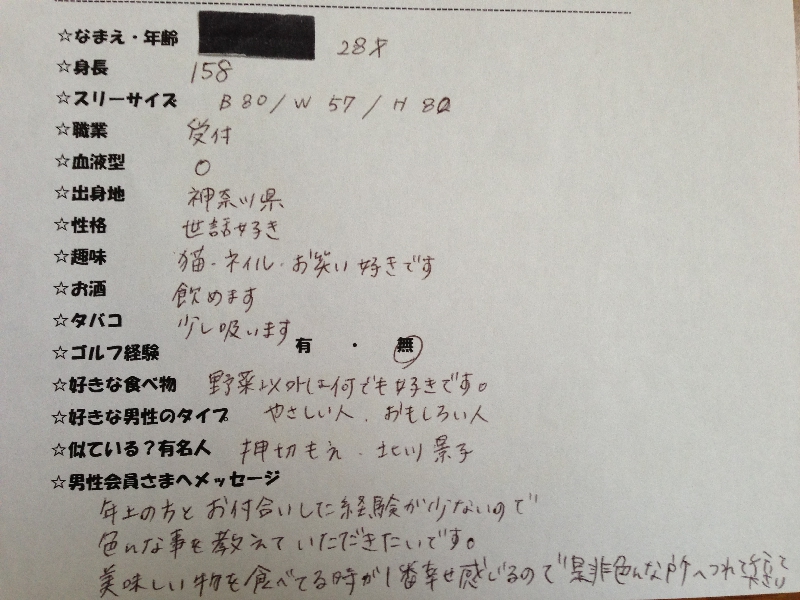 ☆なまえ・年齢 28才
☆身長 158
☆スリーサイズ B 80 / W 57 / H 82
☆職業 受付
☆血液型 O
☆出身地 神奈川県
☆性格 世話好き
☆趣味 猫・ネイル・お笑い好きです
☆お酒 飲めます
☆タバコ 少し吸います
☆ゴルフ経験 有 ・ 無
☆好きな食べ物 野菜以外は何でも好きです。
☆好きな男性のタイプ やさしい人、おもしろい人
☆似ている？有名人 押切もえ・北川景子
☆男性会員さまへメッセージ
年上の方とお付合いした経験が少ないので
色んな事を教えていただきたいです。
美味しい物を食べてる時が1番幸せ感じるので是非色んな所へつれて行って下さい